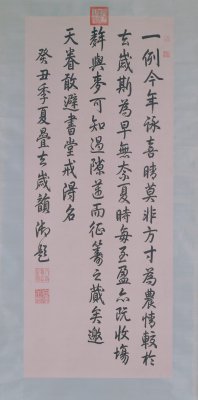 一例今年詠喜晴莫非方寸為農情較於
去歲斯為早無奈夏時每至盈亦既收場
麰與麥可知過隙遂而征籌之蔵矣邀
天眷敢避書堂戒得名
癸丑季夏疊去歲韻御題